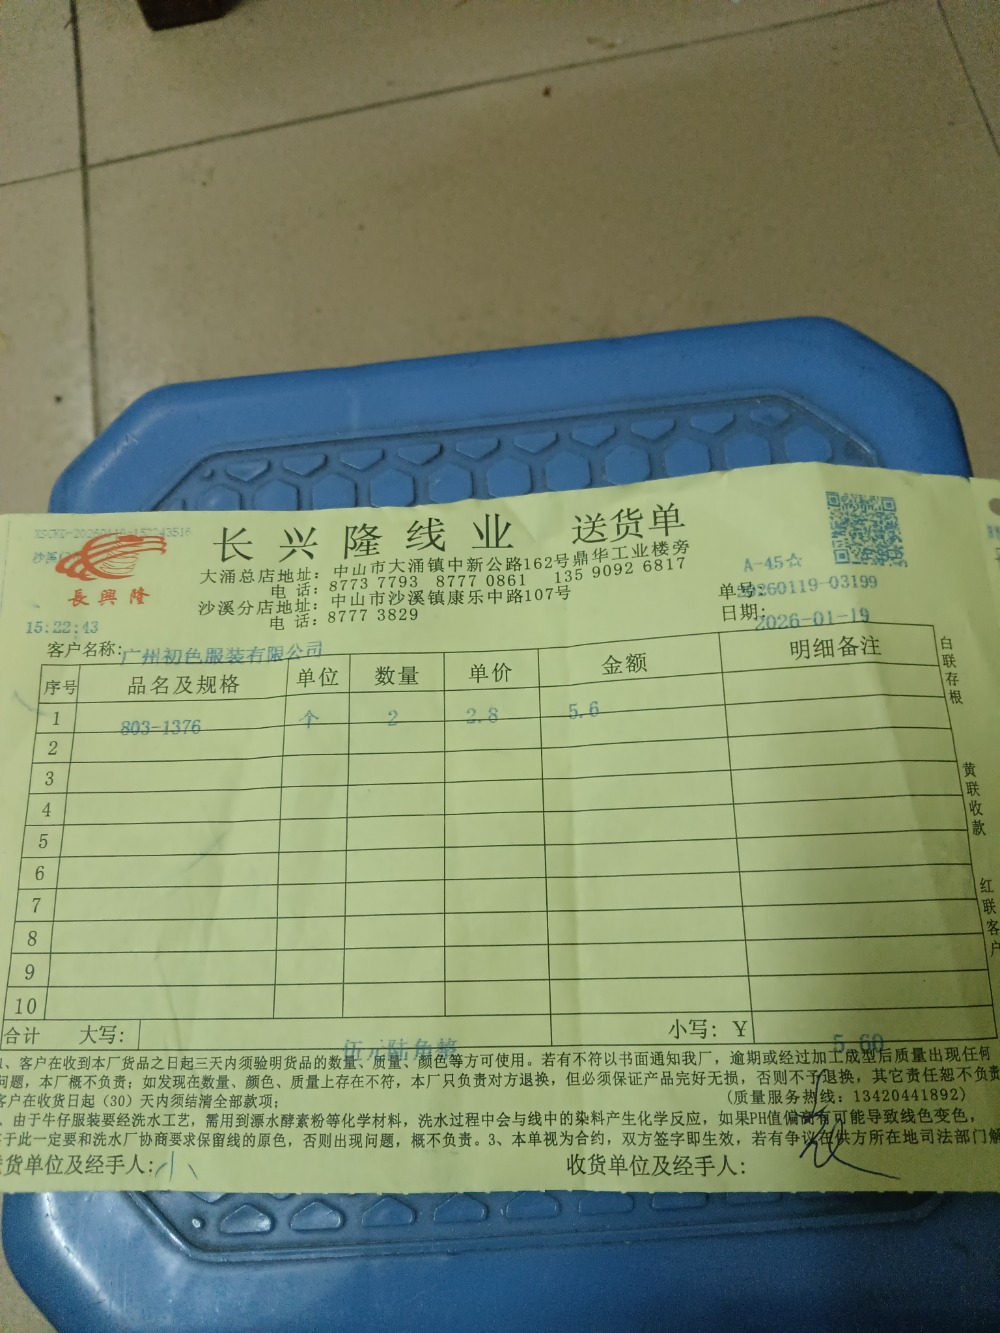 长兴隆线业 送货单
大涌总店地址：中山市大涌镇中新公路162号鼎华工业楼旁
电 话：8773 7793 8777 0861 135 9092 6817
沙溪分店地址：中山市沙溪镇康乐中路107号
电 话：8777 3829
長興隆
A-45☆
单号：20260119-03199
日期：2026-01-19
15:22:43
客户名称：广州初色服装有限公司
序号 品名及规格 单位 数量 单价 金额 明细备注
1 803-1376 个 2 2.8 5.6
2
3
4
5
6
7
8
9
10
合计 大写： 伍元陆角整 小写：¥ 5.60
白联存根
黄联收款
红联客户
1、客户在收到本厂货品之日起三天内须验明货品的数量、质量、颜色等方可使用。若有不符以书面通知我厂，逾期或经过加工成型后质量出现任何
问题，本厂概不负责；如发现在数量、颜色、质量上存在不符，本厂只负责对方退换，但必须保证产品完好无损，否则不予退换，其它责任恕不负责
客户在收货日起（30）天内须结清全部款项； （质量服务热线：13420441892）
、由于牛仔服装要经洗水工艺，需用到漂水酵素粉等化学材料，洗水过程中会与线中的染料产生化学反应，如果PH值偏高有可能导致线色变色，
于此一定要和洗水厂协商要求保留线的原色，否则出现问题，概不负责。3、本单视为合约，双方签字即生效，若有争议在供方所在地司法部门解
货单位及经手人：小 收货单位及经手人：